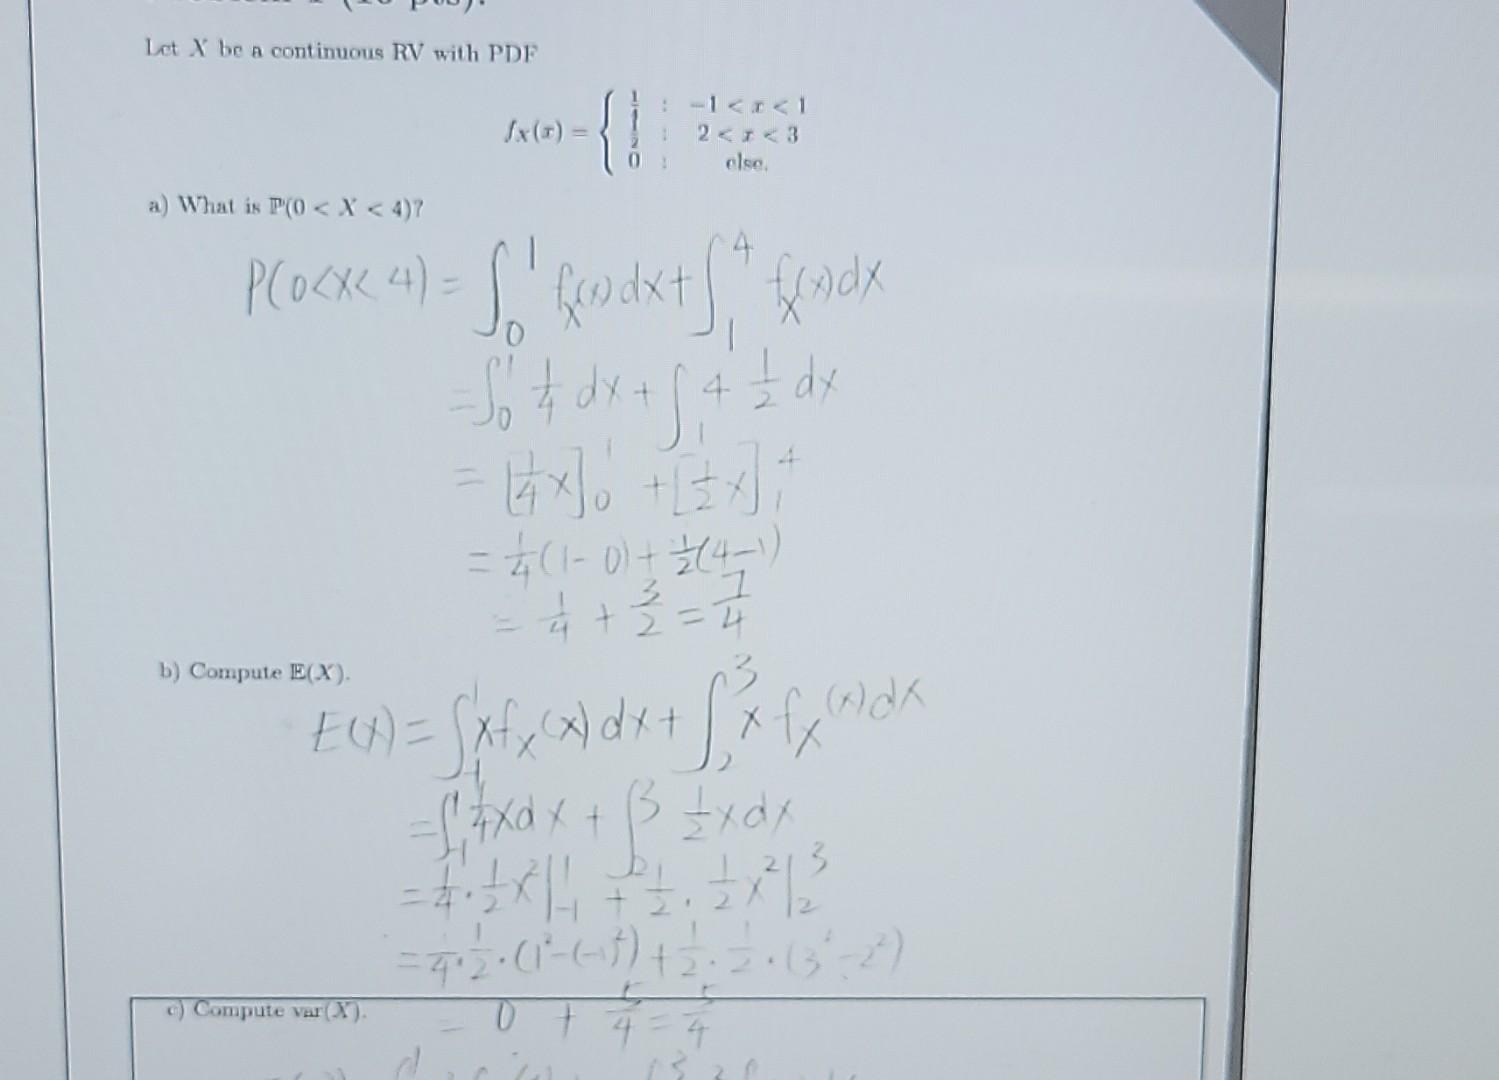 Let X be a continuous RV with PDF
f_X(x) = { 1/4 : −1 < x < 1
1/2 : 2 < x < 3
0 : else.
a) What is ℙ(0 < X < 4)?
P(0<X<4) = ∫_0^1 f_X(x)dx + ∫_1^4 f_X(x)dx
= ∫_0^1 1/4 dx + ∫_1 4 1/2 dx
= [1/4 x]_0^1 + [1/2 x]_1^4
= 1/4(1-0) + 1/2(4-1)
= 1/4 + 3/2 = 7/4
b) Compute 𝔼(X).
E(X) = ∫_-1^1 x f_X(x) dx + ∫_2^3 x f_X(x) dx
= ∫_-1^1 1/4 x dx + ∫_2^3 1/2 x dx
= 1/4 · 1/2 x^2 |_-1^1 + 1/2 · 1/2 x^2 |_2^3
= 1/4 · 1/2 · (1^2-(-1)^2) + 1/2 · 1/2 · (3^2-2^2)
c) Compute var(X).
= 0 + 5/4 = 5/4